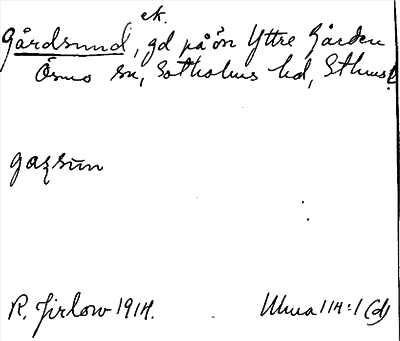 ek.
Gårdsund, gd på ön Yttre Gården
Ösmo sn, Sotholms hd, Sthms l
gaʐsun
R. Jirlow 1914.
Ulma 114:1 (d)